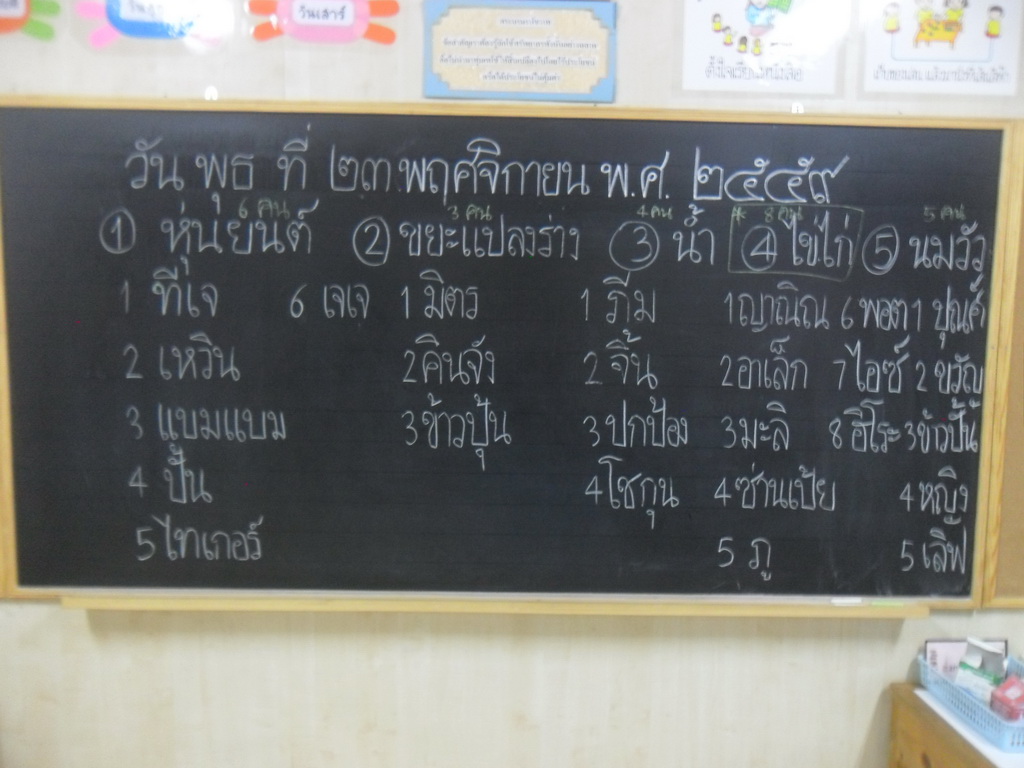 วันเสาร์
ตั้งใจเรียนหนังสือ
วัน พุธ ที่ ๒๓ พฤศจิกายน พ.ศ. ๒๕๕๙
6 คน 3 คน 4 คน * 8 คน 5 คน
1 หุ่นยนต์ 2 ขยะแปลงร่าง 3 น้ำ 4 ไข่ไก่ 5 นมวัว
1 ทีเจ 6 เจเจ 1 มิตร 1 ภีม 1 ญาณิณ 6 พอตา 1 ปุณค์
2 เหวิน 2 คินจัง 2 จิ้น 2 อาเล็ก 7 ไอซ์ 2 ขวัญ
3 แบมแบม 3 ข้าวปุ้น 3 ปกป้อง 3 มะลิ 8 ฮีโระ 3 ข้าวปั้น
4 ปั้น 4 โชกุน 4 ซ่านเป้ย 4 หญิง
5 ไทเกอร์ 5 ภู 5 เลิฟ